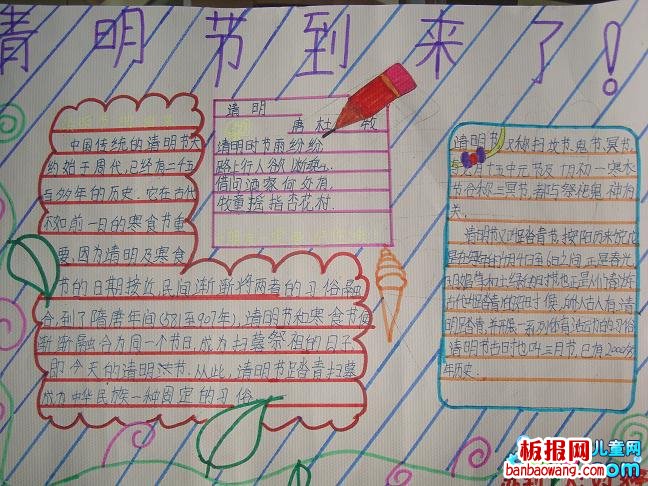 清明节到来了!
中国传统的清明节大
约始于周代,已经有二千五
百多年的历史.它在古代
不如前一日的寒食节重
要,因为清明及寒食
节的日期接近,民间渐渐将两者的习俗融
合,到了隋唐年间(581至907年),清明节和寒食节便
渐渐融合为同一个节日,成为扫墓祭祖的日子
即今天的清明节.从此,清明节踏青扫墓
成为中华民族一种固定的习俗
清明
唐 杜 牧
清明时节雨纷纷
路上行人欲断
借问酒家何处有,
牧童摇指杏花村.
清明节又称扫坟节.鬼节.冥节.
月十五中元节及十月初一寒衣
节合称三冥节,都与祭祀鬼神相
关.
清明节又叫踏青节,按阳历来说,它
是在每年的4月4日至6日之间,正是春光
明媚草木吐绿的时节,也正是人们春游
古代叫踏青的好时候,所以古人有清
明踏青,并开展一系列体育活动的习俗
清明节古时也叫三月节,已有2000多
年历史.
板报网
儿童网
banbaowang.com